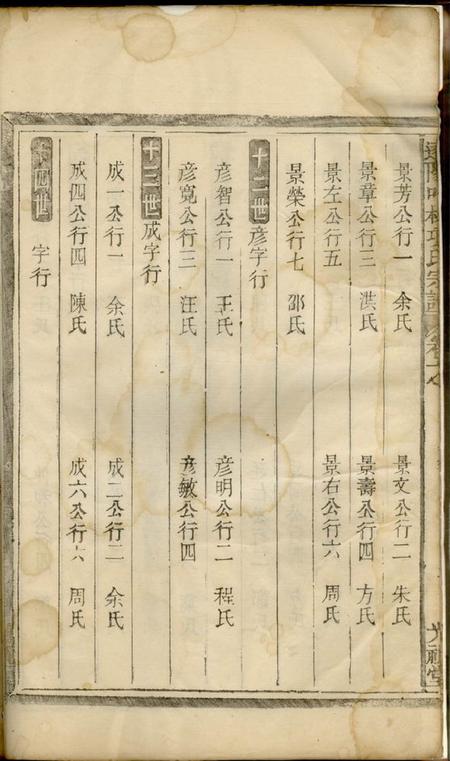 景芳公行一　余氏　景文公行二　朱氏
景章公行三　洪氏　景壽公行四　方氏
景左公行五　景右公行六　周氏
景榮公行七　邵氏
十二世　彦字行
彦智公行一　王氏　彦明公行二　程氏
彦寬公行三　汪氏　彦敏公行四
十三世　成字行
成一公行一　余氏　成二公行二　余氏
成四公行四　陳氏　成六公行六　周氏
十四世　字行